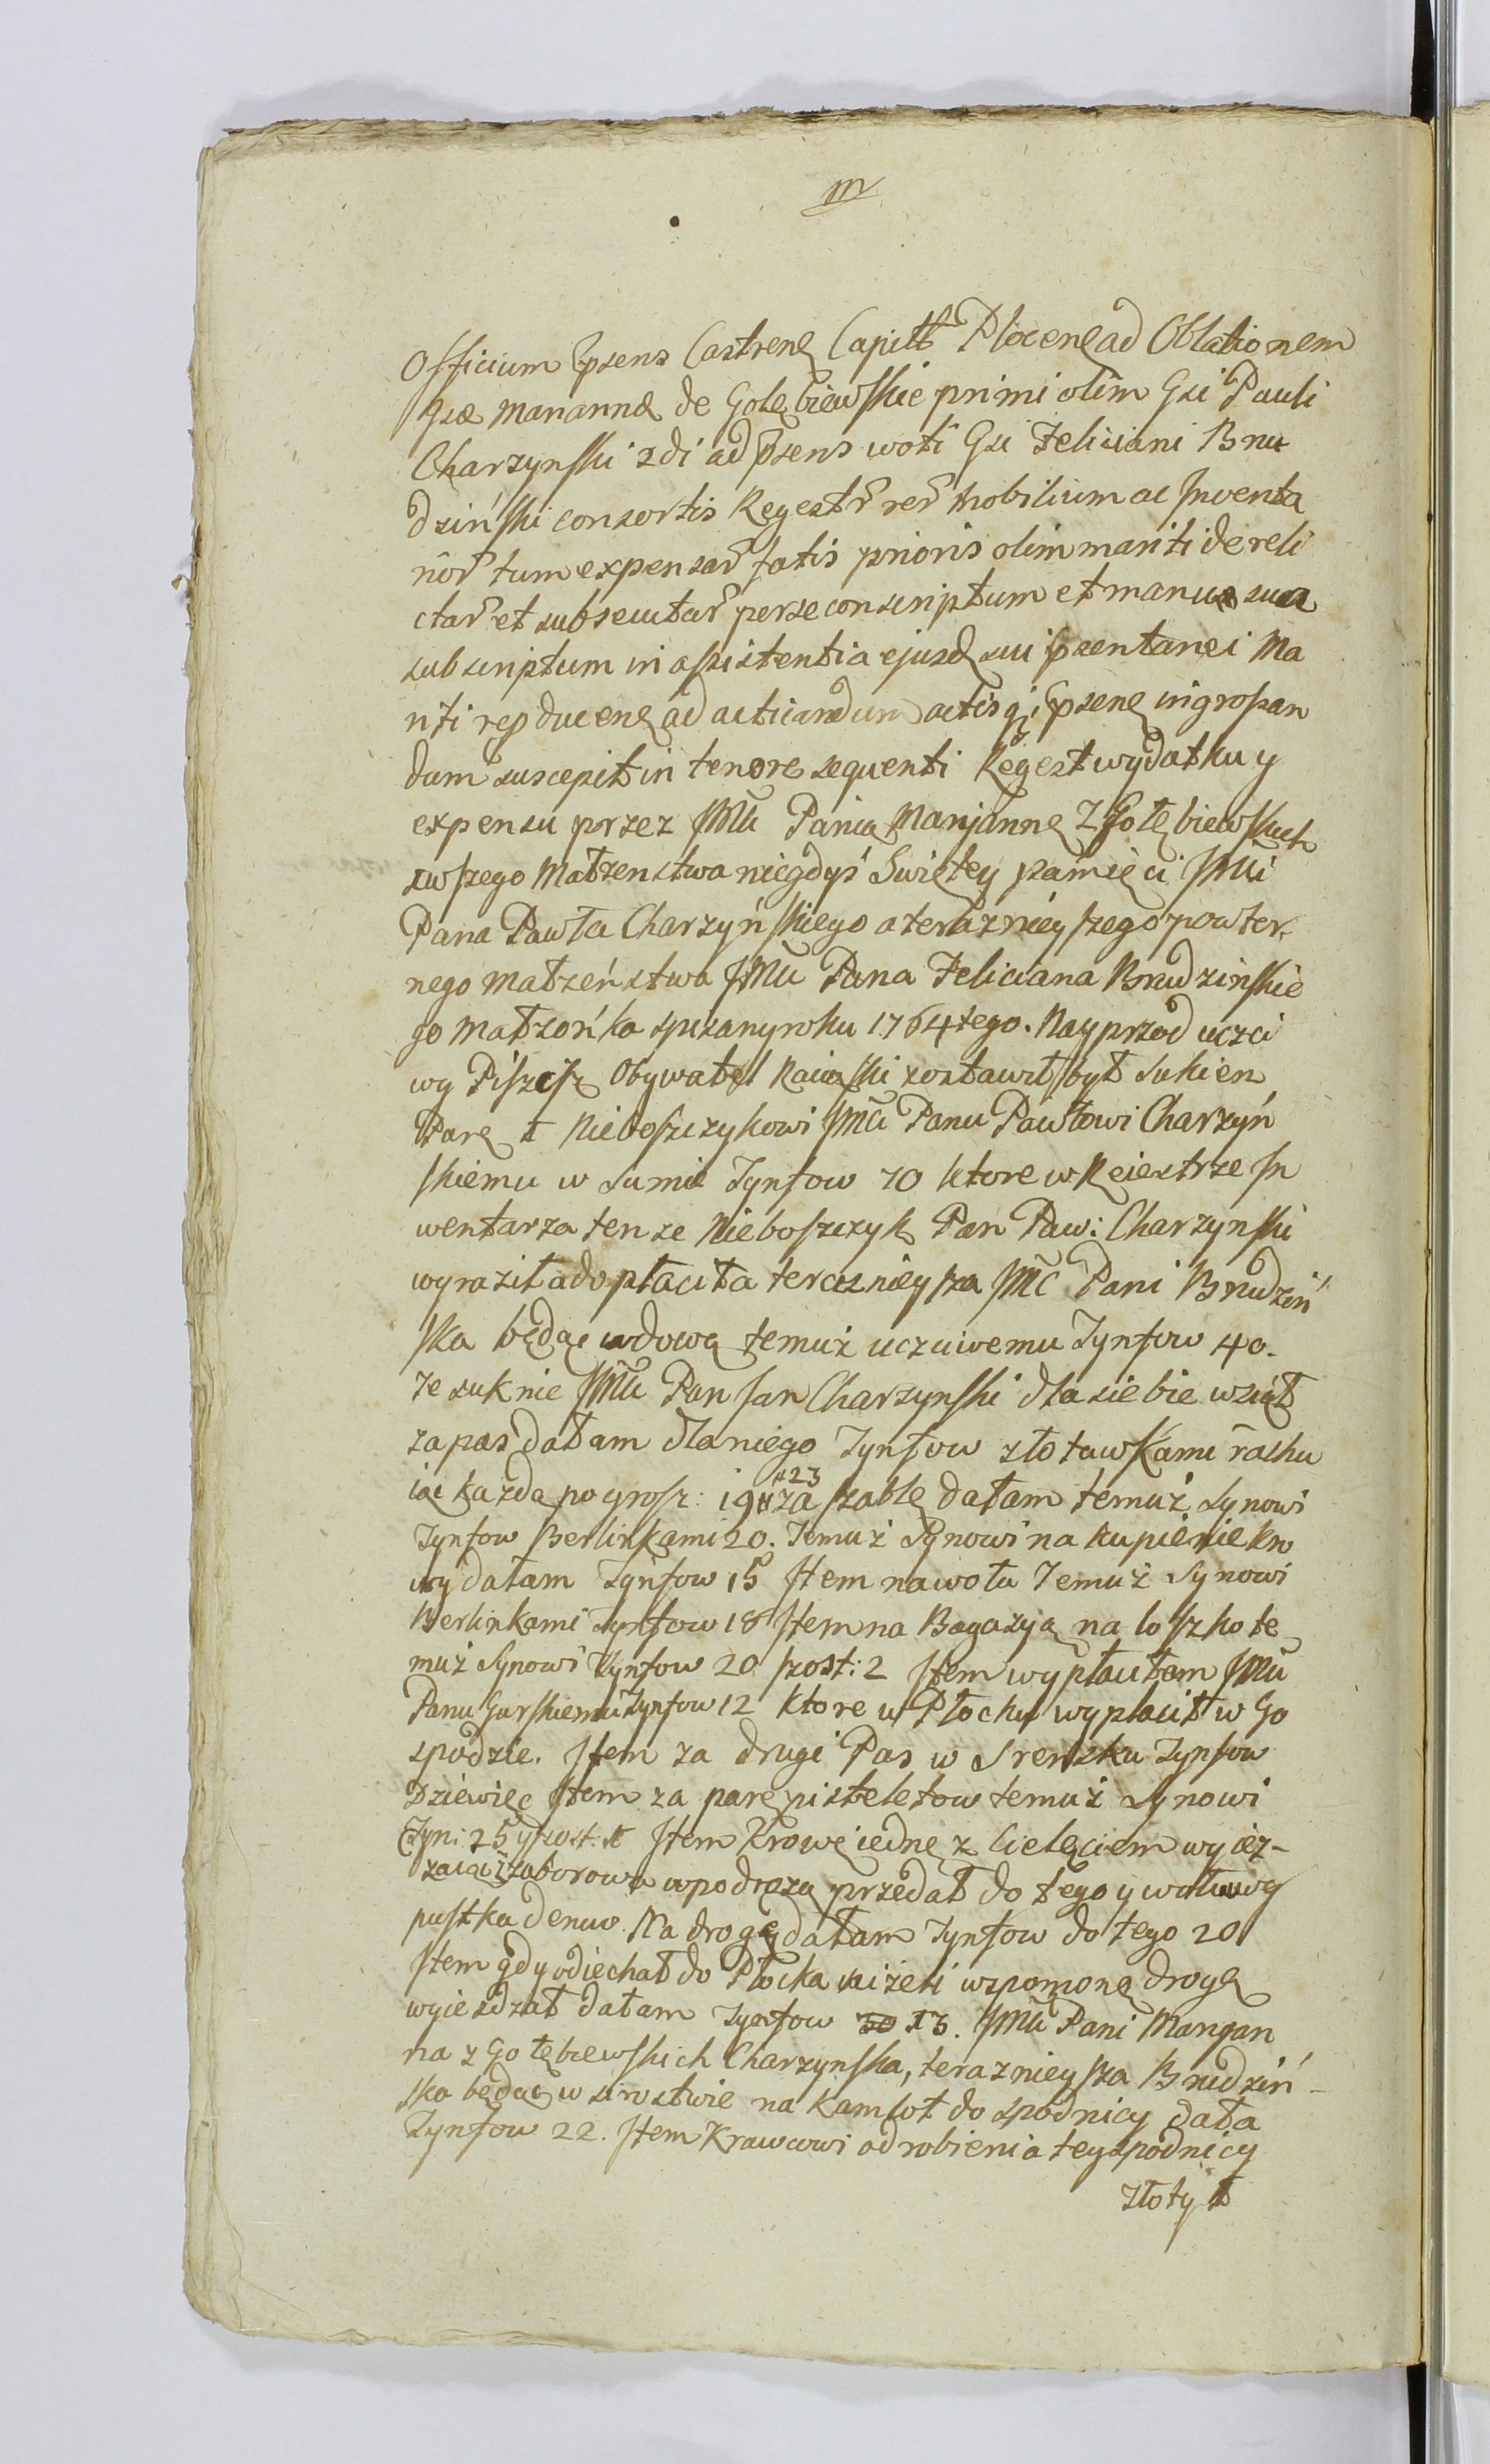 m
Officium Ppsens Castrenę Capitł Plocenę ad Oblationem
Gsæ Mariannæ de Golębiewskie primi olim Gsi Pauli
Charzynski 2di ad ppsens woti Gsi Feliciani Bru
dziński consortis Regestr rer Mobilium ac Inventa
rior tum expensar fatis prioris olim mariti dereli
ctar et subsecutar per se conscriptum et manu sua
subscriptum in assistentia ejusd sui ppsentanei Ma
riti repducenę ad acticandum actisq ppsenę ingrossan
dum suscepit in tenore sequenti Regest wydatku y
expensu przez JMci Panią Maryannę Z Gołębiewskich
zwszego Małzenstwa niegdyś Swiętey pamięci JMci
Pana Pawła Charzyńskiego a teraznieyszego powtor
nego małzeństwa JMci Pana Feliciana Brudzinskie
go małzońka spisany roku 1764tego. Nayprzod uczci
wy Obywatel zostawił był Sukien
Parę 1 Nieboszczykowi JMci Panu Pawłowi Charzyń
skiemu w Sumie Tynfow 70 ktore w Reiestrze In
wentarza tenze Nieboszczyk Pan Paw: Charzynski
wyraził a dopłaciła teraznieysza JMC Pani Brudziń
ska będąc wdową temuż uczciwemu Tynfow 40.
Te suknie JMci Pan Jan Charzynski dla siebie wziął
za pas dałam dla niego Tynfow złotawkami rachu
iąc kazdą po grosz: 19 #23 za szablę dałam temuż Synowi
Tynfow Berlinkami 20. Temuż Synowi na kupienie kro
wy dałam Tynfow 15 Item na wołu Temuż Synowi
Berlinkami Tynfow 18 Item na Bagazyą na loszko te
muż Synowi Tynfow 20 szost: 2 Item wypłaciłam JMci
Panu Gurskiemu Tynfow 12 ktore w Płocku wypłacił w Go
spodzie. Item za drugi Pas w Srensku Tynfow
Dziewięć Item za parę pistoletow temuż Synowi
Tyn: 25 y szost: 1 Item Krowę iednę z Cielęciem wyież-
zaiąc z zaborowa w podrozą przedał do tego y
. Na drogę dałam Tynfow do tego 20
Item gdy odiechał do Płocka niżeli wspomoną drogę
wyiezdzał dałam Tynfow 30 13. JMci Pani Maryan
na z Gołębiewskich Charzynska, teraznieysza Brudziń-
ska będąc w sirostwie na kamlot do spodnicy dała
Tynfow 22. Item Krawcowi od robienia tey spodnicy
złoty 1